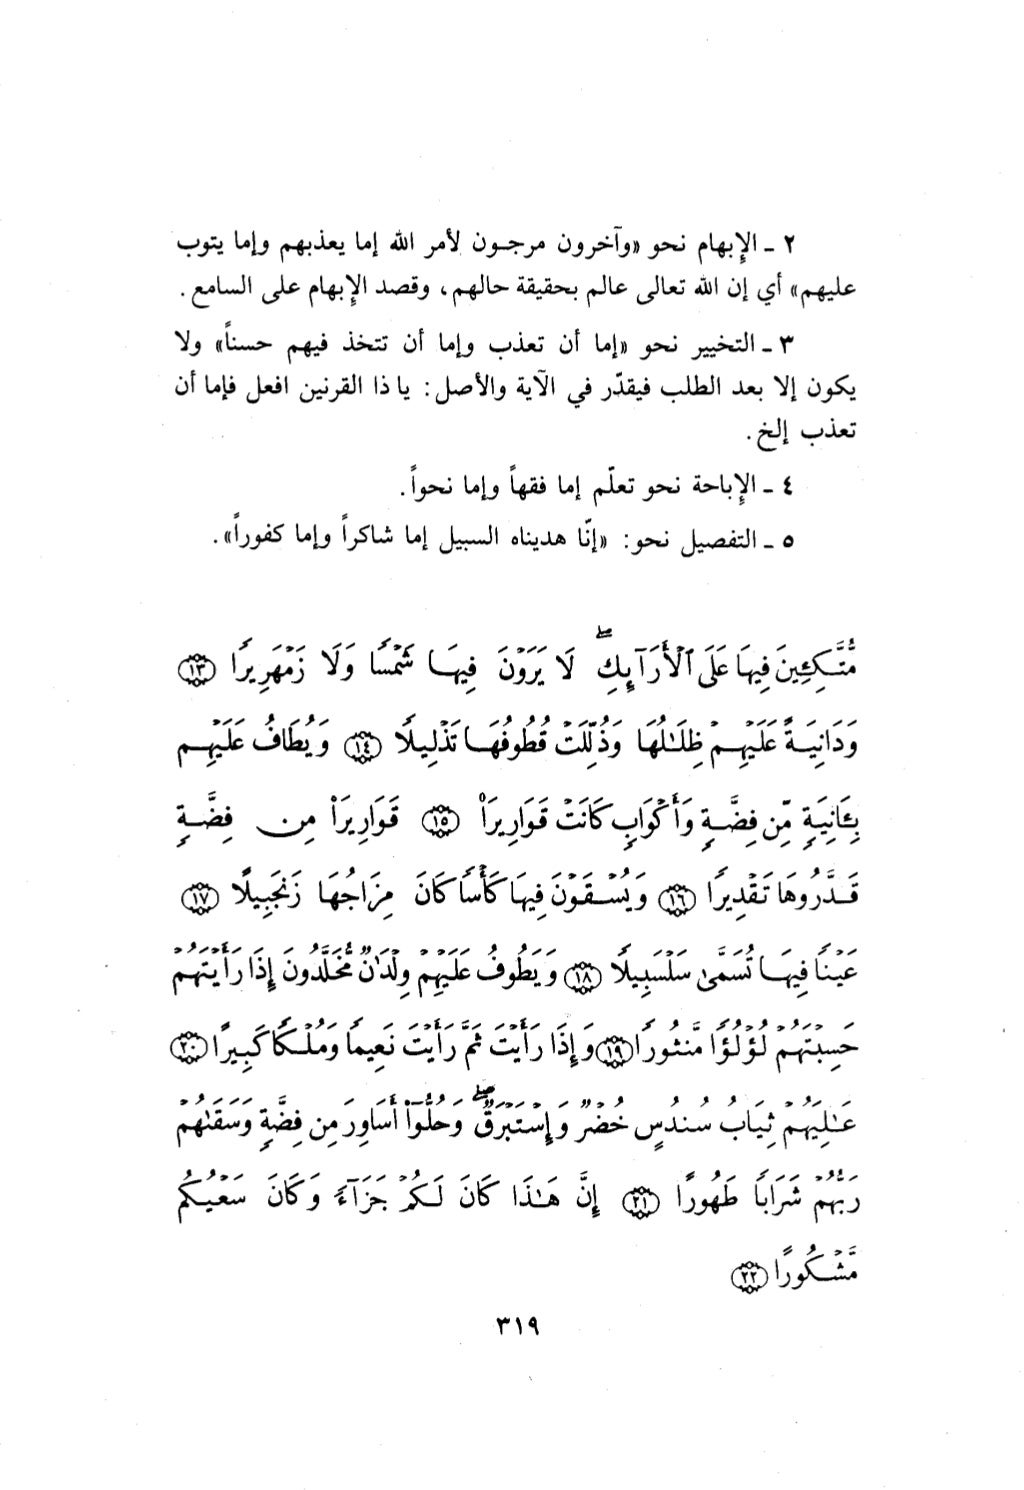 ٢ ـ الإِبهام نحو «وآخرون مرجون لأمر الله إما يعذبهم وإما يتوب
عليهم» أي إن الله تعالى عالم بحقيقة حالهم، وقصد الإِبهام على السامع.
٣ ـ التخيير نحو «إما أن تعذب وإما أن تتخذ فيهم حسناً» ولا
يكون إلا بعد الطلب فيقدّر في الآية والأصل: يا ذا القرنين افعل فإما أن
تعذب إلخ.
٤ ـ الإِباحة نحو تعلّم إما فقهاً وإما نحواً.
٥ ـ التفصيل نحو: «إنّا هديناه السبيل إما شاكراً وإما كفوراً».
مُّتَّكِـِٔينَ فِيهَا عَلَى ٱلْأَرَآئِكِ ۖ لَا يَرَوْنَ فِيهَا شَمْسًا وَلَا زَمْهَرِيرًا ﴿١٣﴾
وَدَانِيَةً عَلَيْهِمْ ظِلَٰلُهَا وَذُلِّلَتْ قُطُوفُهَا تَذْلِيلًا ﴿١٤﴾ وَيُطَافُ عَلَيْهِم
بِـَٔانِيَةٍ مِّن فِضَّةٍ وَأَكْوَابٍ كَانَتْ قَوَارِيرَا۠ ﴿١٥﴾ قَوَارِيرَا۟ مِن فِضَّةٍ
قَدَّرُوهَا تَقْدِيرًا ﴿١٦﴾ وَيُسْقَوْنَ فِيهَا كَأْسًا كَانَ مِزَاجُهَا زَنجَبِيلًا ﴿١٧﴾
عَيْنًا فِيهَا تُسَمَّىٰ سَلْسَبِيلًا ﴿١٨﴾ وَيَطُوفُ عَلَيْهِمْ وِلْدَٰنٌ مُّخَلَّدُونَ إِذَا رَأَيْتَهُمْ
حَسِبْتَهُمْ لُؤْلُؤًا مَّنثُورًا ﴿١٩﴾ وَإِذَا رَأَيْتَ ثَمَّ رَأَيْتَ نَعِيمًا وَمُلْكًا كَبِيرًا ﴿٢٠﴾
عَٰلِيَهُمْ ثِيَابُ سُندُسٍ خُضْرٌ وَإِسْتَبْرَقٌ ۖ وَحُلُّوٓا۟ أَسَاوِرَ مِن فِضَّةٍ وَسَقَىٰهُمْ
رَبُّهُمْ شَرَابًا طَهُورًا ﴿٢١﴾ إِنَّ هَٰذَا كَانَ لَكُمْ جَزَآءً وَكَانَ سَعْيُكُم
مَّشْكُورًا ﴿٢٢﴾
٣١٩